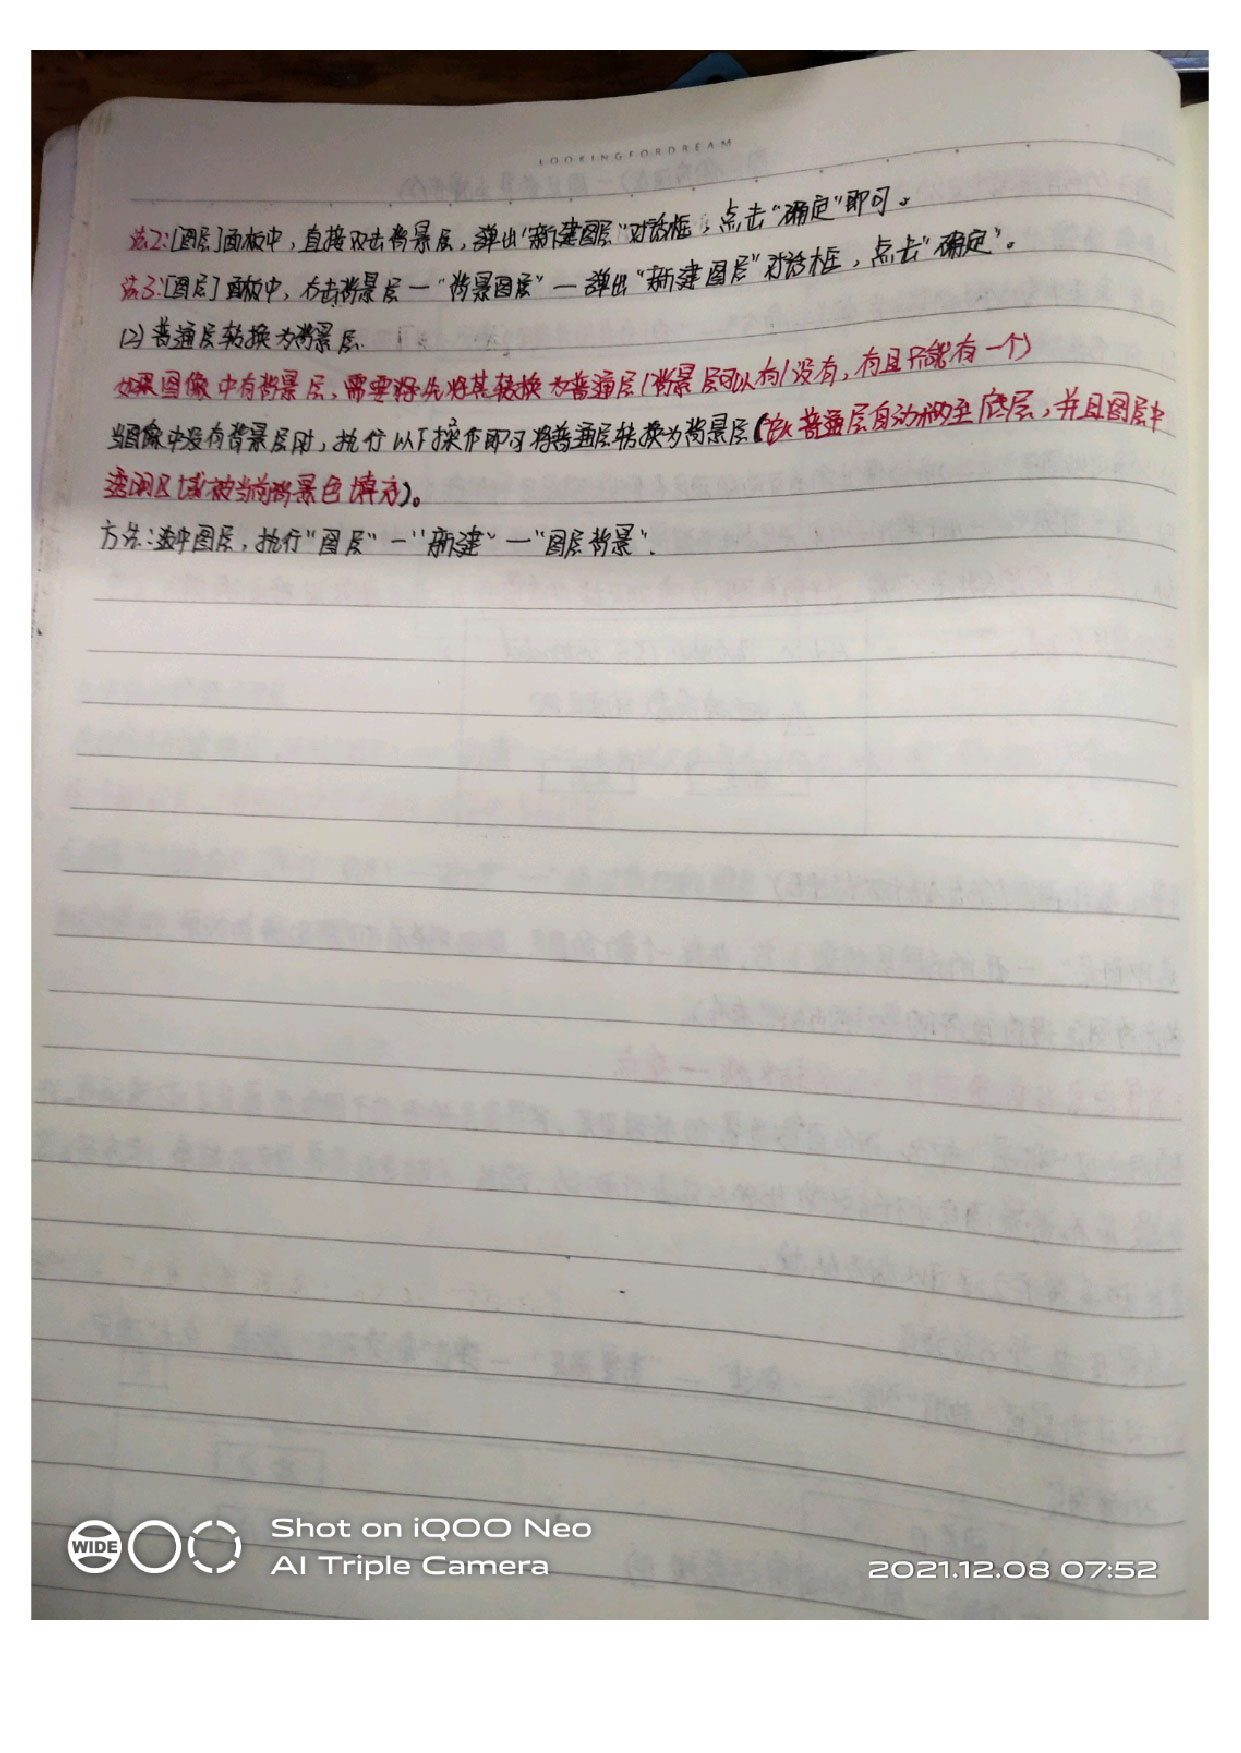 LOOKINGFORDREAM
法2:[图层]面板中，直接双击背景层，弹出“新建图层”对话框，点击“确定”即可。
法3:[图层]面板中，右击背景层—“背景图层”—弹出“新建图层”对话框，点击“确定”。
(2)普通层转换为背景层.
如果图像中有背景层，需要将先将其转换为普通层(背景层可以有/没有，有且只能有一个)
当图像中没有背景层时，执行以下操作即可将普通层转换为背景层(该普通层自动移至底层，并且图层中
透明区域被当前背景色填充)。
方法:选中图层，执行“图层”—“新建”—“图层背景”.
WIDE
Shot on iQOO Neo
AI Triple Camera
2021.12.08 07:52